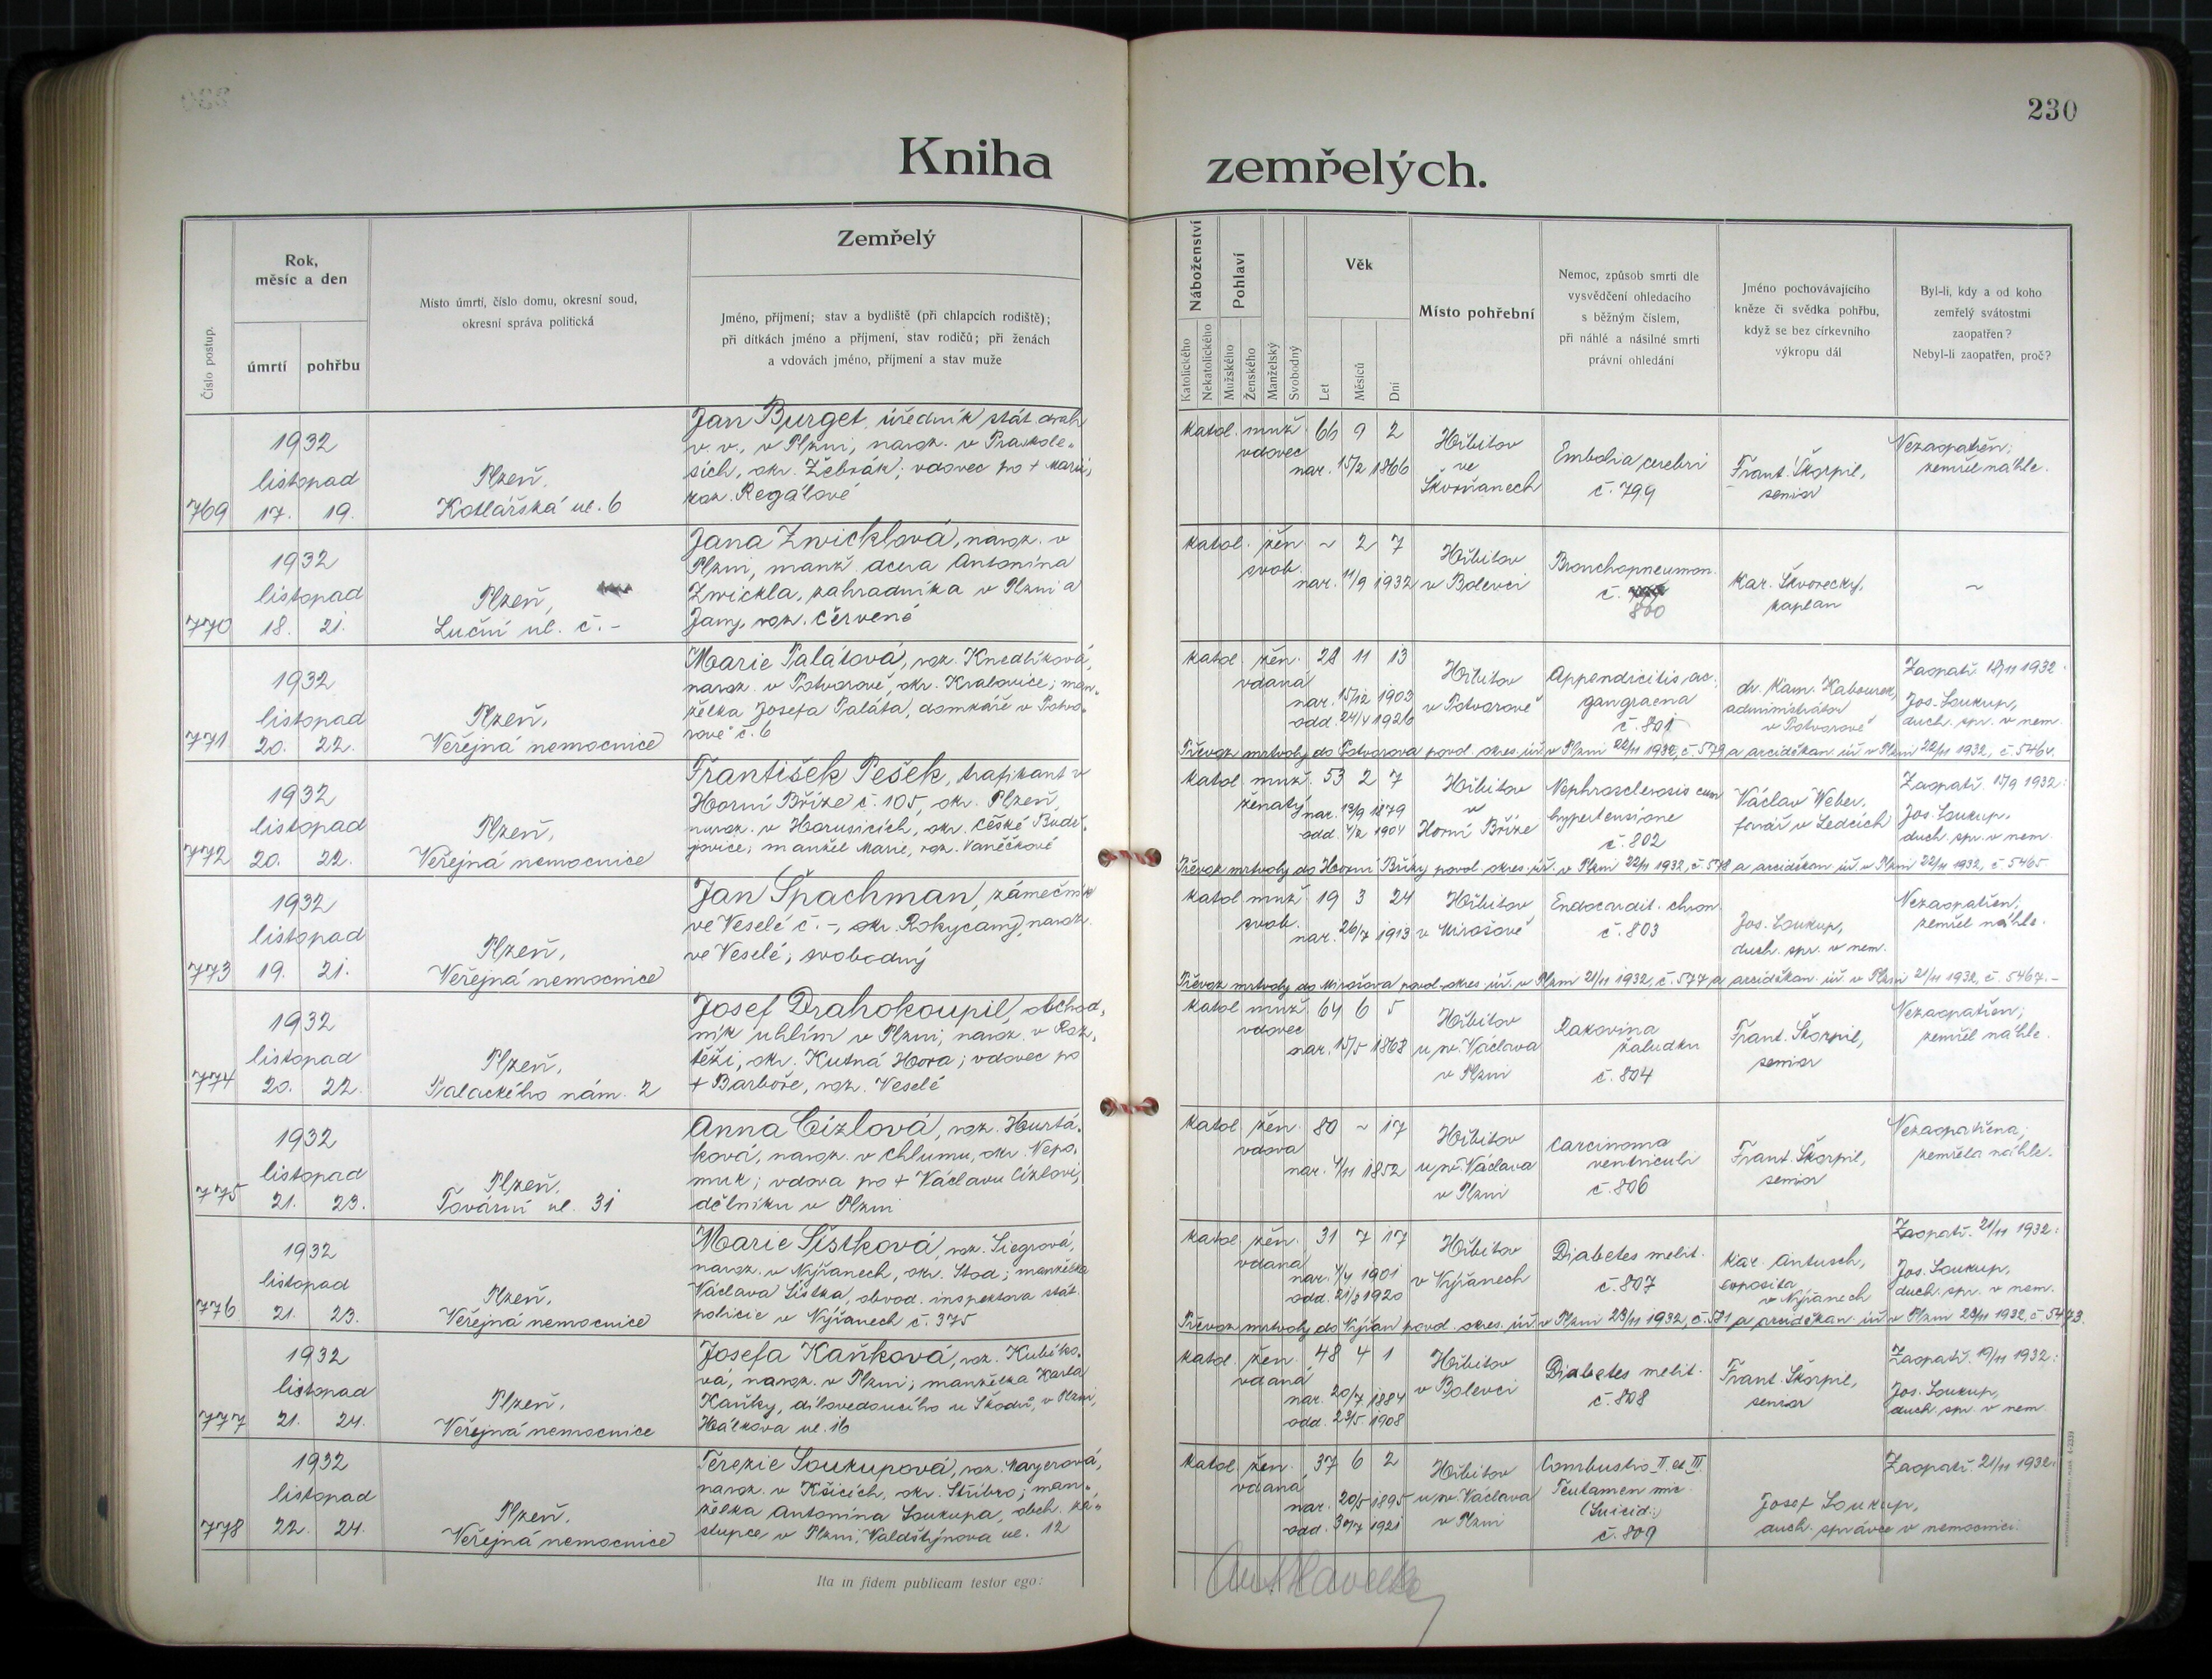 230
Kniha zemřelých.
Číslo postup.
Rok,
měsíc a den
úmrtí pohřbu
Místo úmrtí, číslo domu, okresní soud,
okresní správa politická
Zemřelý
Jméno, příjmení; stav a bydliště (při chlapcích rodiště);
při dítkách jméno a příjmení, stav rodičů; při ženách
a vdovách jméno, příjmení a stav muže
Náboženství
Katolického
Nekatolického
Pohlaví
Mužského
Ženského
Manželský
Svobodný
Věk
Let
Měsíců
Dní
Místo pohřební
Nemoc, způsob smrti dle
vysvědčení ohledacího
s běžným číslem,
při náhlé a násilné smrti
právní ohledání
Jméno pochovávajícího
kněze či svědka pohřbu,
když se bez církevního
výkropu dál
Byl-li, kdy a od koho
zemřelý svátostmi
zaopatřen?
Nebyl-li zaopatřen, proč?
769
1932
listopad
17. 19.
Plzeň,
Kotlářská ul. 6
Jan Burget, úředník stát. drah
v. v., v Plzni, naroz. v Praskole-
sích, okr. Žebrák; vdovec po + Marii,
roz. Regálové
katol. muž. 66 9 2
vdovec
nar. 15/2 1866
Hřbitov
ve
Skvrňanech
Embolia cerebri
č. 799
Frant. Škorpil,
senior
Nezaopatřen;
zemřel náhle.
770
1932
listopad
18. 21.
Plzeň,
Luční ul. č. -
Jana Zwicklová, naroz. v
Plzni, manž. dcera Antonína
Zwickla, zahradníka v Plzni a
Jany, roz. Červené
katol. žen. ~ 2 7
svob.
nar. 11/9 1932
Hřbitov
v Bolevci
Bronchopneumon.
č.
800
Kar. Škvorecký,
kaplan
~
771
1932
listopad
20. 22.
Plzeň,
Veřejná nemocnice
Marie Palátová, roz. Knedlíková,
naroz. v Potvorově, okr. Kralovice; man-
želka Josefa Paláta, domkáře v Potvo-
rově č. 6
katol. žen. 28 11 13
vdaná
nar. 15/12 1903
odd. 24/4 1926
Hřbitov
v Potvorově
Appendicitis ac.
gangraena
č. 801
dr. Kam. Kabourek,
administrátor
v Potvorově
Zaopatř. 18/11 1932:
Jos. Soukup,
duch. spr. v nem.
Převoz mrtvoly do Potvorova povol. okres. úř. v Plzni 22/11 1932, č. 579 a arciděkan. úř. v Plzni 22/11 1932, č. 5464.
772
1932
listopad
20. 22.
Plzeň,
Veřejná nemocnice
František Pešek, trafikant v
Horní Bříze č. 105, okr. Plzeň,
naroz. v Horusicích, okr. České Buděj-
jovice; manžel Marie, roz. Vaněčkové
katol. muž. 53 2 7
ženatý
nar. 13/9 1879
odd. 7/2 1904
Hřbitov
v
Horní Bříze
Nephrosclerosis cum
hypertensione
č. 802
Václav Weber,
farář v Ledcích
Zaopatř. 15/9 1932:
Jos. Soukup,
duch. spr. v nem.
Převoz mrtvoly do Horní Břízy povol. okres. úř. v Plzni 22/11 1932, č. 578 a arciděkan. úř. v Plzni 22/11 1932, č. 5465
773
1932
listopad
19. 21.
Plzeň,
Veřejná nemocnice
Jan Špachman, zámečník
ve Veselé č. -, okr. Rokycany, naroz.
ve Veselé; svobodný
katol. muž. 19 3 24
svob.
nar. 26/7 1913
Hřbitov
v Mirošově
Endocardit. chron.
č. 803
Jos. Soukup,
duch. spr. v nem.
Nezaopatřen;
zemřel náhle.
Převoz mrtvoly do Mirošova povol. okres. úř. v Plzni 21/11 1932, č. 577 a arciděkan. úř. v Plzni 21/11 1932, č. 5467. -
774
1932
listopad
20. 22.
Plzeň,
Palackého nám. 2
Josef Drahokoupil, obchod-
ník uhlím v Plzni, naroz. v Roz-
těži, okr. Kutná Hora; vdovec po
+ Barboře, roz. Veselé
katol. muž. 64 6 5
vdovec
nar. 15/5 1868
Hřbitov
u sv. Václava
v Plzni
Rakovina
žaludku
č. 804
Frant. Škorpil,
senior
Nezaopatřen;
zemřel náhle.
775
1932
listopad
21. 23.
Plzeň,
Tovární ul. 31
Anna Cízlová, roz. Hurtá-
ková, naroz. v Chlumu, okr. Nepo-
muk; vdova po + Václavu Cízlovi,
dělníku v Plzni
katol. žen. 80 ~ 17
vdova
nar. 4/11 1852
Hřbitov
u sv. Václava
v Plzni
Carcinoma
ventriculi
č. 806
Frant. Škorpil,
senior
Nezaopatřena;
zemřela náhle.
776
1932
listopad
21. 23.
Plzeň,
Veřejná nemocnice
Marie Šístková, roz. Siegrová,
naroz. v Nýřanech, okr. Stod; manželka
Václava Šístka, obvod. inspektora stát.
policie v Nýřanech č. 375
katol. žen. 31 7 17
vdaná
nar. 4/4 1901
odd. 21/8 1920
Hřbitov
v Nýřanech
Diabetes melit.
č. 807
Kar. Antusch,
exposita
v Nýřanech
Zaopatř. 21/11 1932:
Jos. Soukup,
duch. spr. v nem.
Převoz mrtvoly do Nýřan povol. okres. úř. v Plzni 23/11 1932, č. 581 a arciděkan. úř. v Plzni 23/11 1932, č. 5473.
777
1932
listopad
21. 24.
Plzeň,
Veřejná nemocnice
Josefa Kaňková, roz. Kubíko-
vá, naroz. v Plzni; manželka Karla
Kaňky, dílovedoucího u Škodů, v Plzni,
Hálkova ul. 16
katol. žen. 48 4 1
vdaná
nar. 20/7 1884
odd. 23/5 1908
Hřbitov
v Bolevci
Diabetes melit.
č. 808
Frant. Škorpil,
senior
Zaopatř. 19/11 1932:
Jos. Soukup,
duch. spr. v nem.
778
1932
listopad
22. 24.
Plzeň,
Veřejná nemocnice
Terezie Soukupová, roz. Mayerová,
naroz. v Kšicích, okr. Stříbro; man-
želka Antonína Soukupa, obch. zá-
stupce v Plzni, Valdštýnova ul. 12
katol. žen. 37 6 2
vdaná
nar. 20/5 1895
odd. 30/7 1921
Hřbitov
u sv. Václava
v Plzni
Combustio II. et III.
Tentamen
(Suicid.)
č. 809
Josef Soukup,
duch. správce v nemocnici.
Zaopatř. 21/11 1932:
Ita in fidem publicam testor ego: